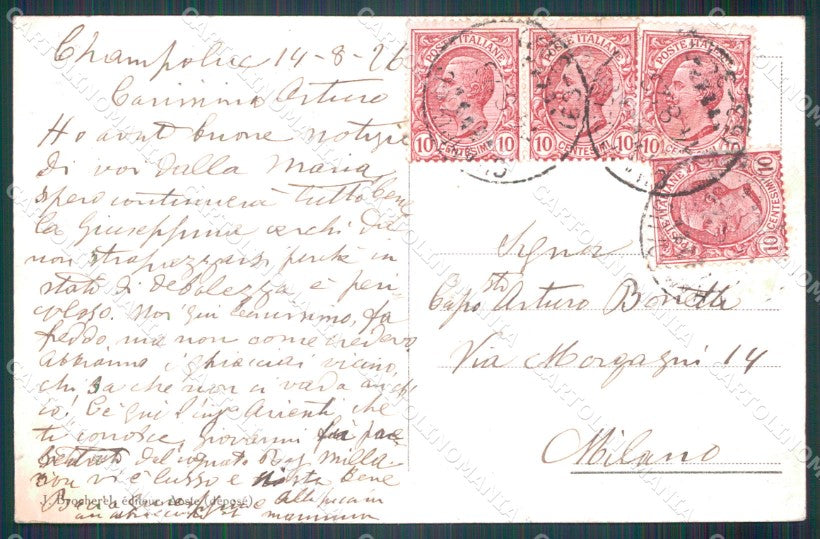 Champoluc 14-8-26
Carissimo Arturo
Ho avut buone notizie
di voi dalla Maria,
spero continuerà tutto bene
la Giuseppina cerchi di
non strapazzarsi perché in
stato di debolezza è peri-
coloso. Noi qui benissimo, fa
freddo, ma non come credevo
abbiamo i ghiacciai vicino,
chi sa che non ci vada anch
io! C'è qui l'ing. Arienti che
ti conosce, giovanni
dal cognato Rag. Milla
non vi è lusso e si sta bene
J. Brocherel, éditeur, Aoste (déposé)
POSTE ITALIANE
10 CENTESIMI 10
POSTE ITALIANE
10 CENTESIMI 10
POSTE ITALIANE
10 CENTESIMI 10
POSTE ITALIANE
10 CENTESIMI 10
Signor
Capo Arturo Bonetti
Via Morgagni 14
Milano
CARTOLINOMANIA